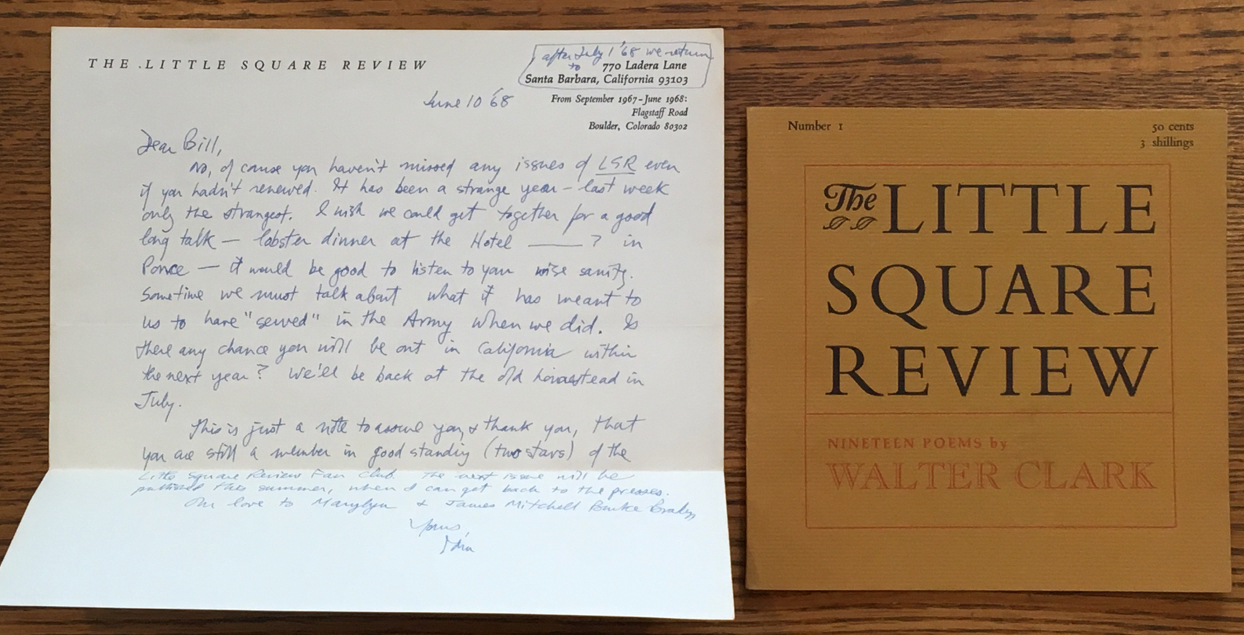 THE LITTLE SQUARE REVIEW
after July 1 '68 we return
to 770 Ladera Lane
Santa Barbara, California 93103
From September 1967-June 1968:
Flagstaff Road
Boulder, Colorado 80302
June 10 '68
Dear Bill,
No, of course you haven't missed any issues of LSR even
if you hadn't renewed. It has been a strange year – last week
only the strangest. I wish we could get together for a good
long talk — lobster dinner at the Hotel ——— ? in
Ponce — it would be good to listen to your wise sanity.
Sometime we must talk about what it has meant to
us to have "served" in the Army when we did. Is
there any chance you will be out in California within
the next year? We'll be back at the old homestead in
July.
This is just a note to assure you, & thank you, that
you are still a member in good standing (two stars) of the
Little Square Review Fan Club. The next issue will be
published this summer, when I can get back to the presses.
Our love to Marylyn & James Mitchell
Yours,
Number 1
50 cents
3 shillings
The LITTLE
SQUARE
REVIEW
NINETEEN POEMS by
WALTER CLARK